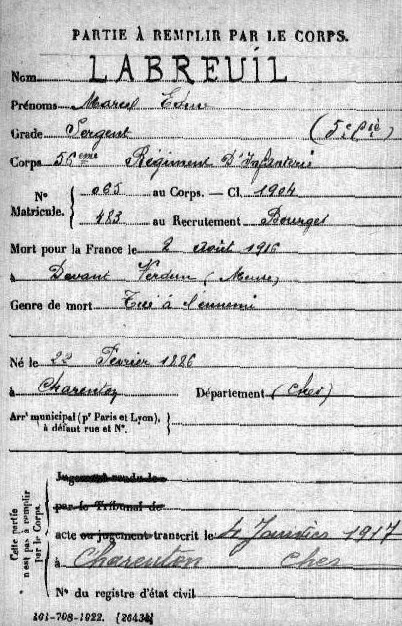 PARTIE À REMPLIR PAR LE CORPS.
Nom LABREUIL
Prénoms Marcel Edme
Grade Sergent (5e Cie)
Corps 56ème Régiment D'Infanterie
N° Matricule. { 065 au Corps. — Cl. 1904
483 au Recrutement Bourges
Mort pour la France le 2 août 1916
à Devant Verdun (Meuse)
Genre de mort Tué à l'ennemi
Né le 22 Février 1886
à Charenton Département (Cher)
Arrt municipal (pr Paris et Lyon),
à défaut rue et N°.
Cette partie n'est pas à remplir par le Corps.
Jugement rendu le
par le Tribunal de
acte ou jugement transcrit le 4 Janvier 1917
à Charenton Cher
N° du registre d'état civil
161-708-1922. [26434]